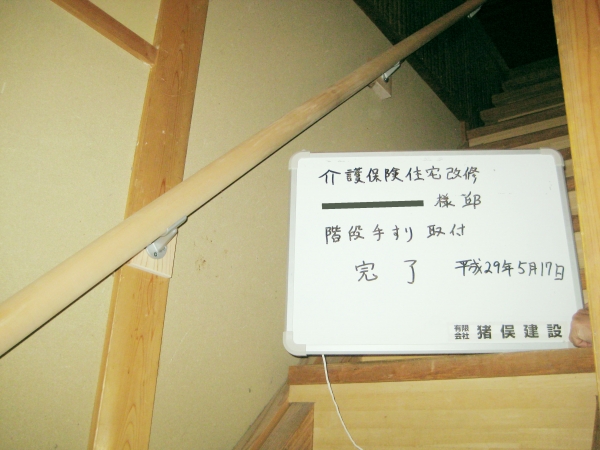 介護保険住宅改修
様邸
階段手すり取付
完了 平成29年5月17日
有限会社 猪俣建設